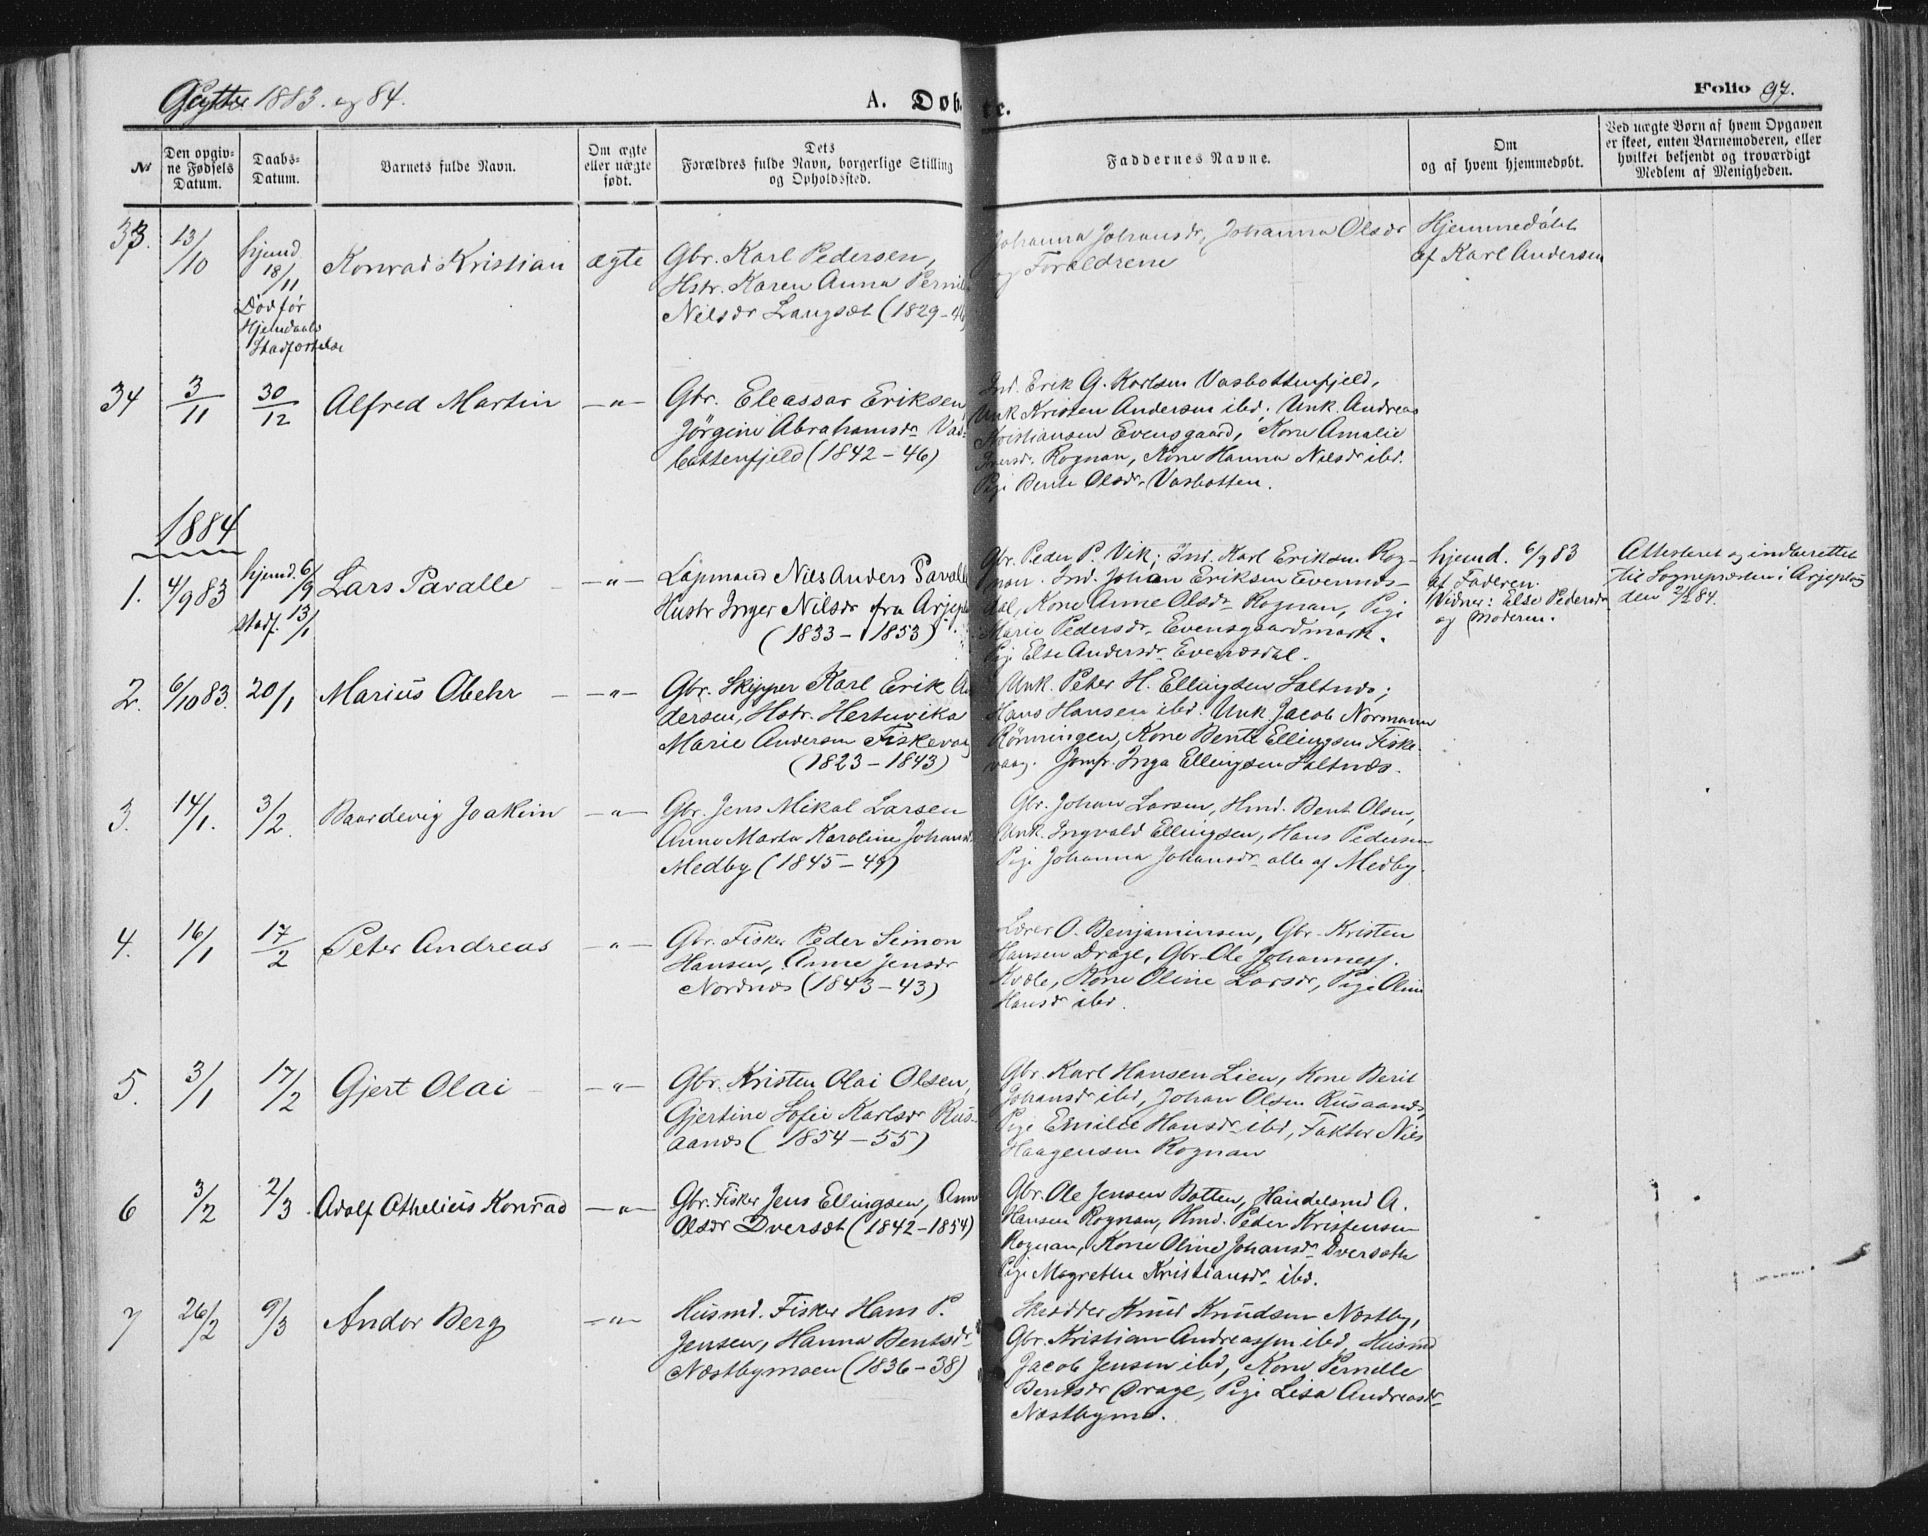 1883. og 84.
A. Døbte.
Folio 97.
No
Den opgivne Fødsels Datum.
Daabs-Datum.
Barnets fulde Navn.
Om ægte eller uægte født.
Dets Forældres fulde Navn, borgerlige Stilling og Opholdssted.
Faddernes Navne.
Om og af hvem hjemmedøbt.
Ved uægte Børn af hvem Opgaven er skeet, enten Barnemoderen, eller hvilket bekjendt og troværdigt Medlem af Menigheden.
33.
13/10
hjemd 18/11
Død før
Hjemdaabs
Stadfæstelse
Konrad Kristian
ægte
Gbr. Karl Pedersen,
Hstr. Karen Anna Pernil
Nilsdr Langsæt (1829-46)
Johanna Johansdr, Johanna Olsdr
og Forældrene
Hjemmedøbt
af Karl Andersen
34
3/11
30/12
Alfred Martin
-"-
Gbr. Eleassar Eriksen,
Jörgine Abrahamsdr Vas-
bottenfjeld (1842-46)
Ind. Erik G. Karlsen Vasbottenfjeld,
Unk Kristen Andersen ibd. Unk. Andreas
Kristiansen Evensgaard, Kone Amalie
Iversdr. Rognan, Kone Hanna Nilsdr ibd.
Pige Bente Olsdr Vasbotten.
1884
1.
4/9 83
hjemd. 6/9
stadf. 13/1
Lars Pavalle
-"-
Lapmand Nils Anders Pavalle
Hustr Inger Nilsdr fra Arjeplo
(1833-1853)
Gbr. Peder P. Vik; Ind. Karl Eriksen Rog-
nan. Ind. Johan Eriksen Evennes-
dal, Kone Anne Olsdr Rognan, Pige
Marie Pedersdr Evensgaardmark.
Pige Else Andersdr Evenesdal.
hjemd. 6/9 83
af Faderen.
Vidner: Else Pedersdr
og Moderen.
Attesteret og indberettet
til Sognepræsten i Arjeplog
den 2/2 84.
2.
6/10 83.
20/1
Marius Obehr
-"-
Gbr. Skipper Karl Erik An
dersen, Hstr. Hertuvika
Marie Andersen Fiskevaag
(1823-1843)
Unk. Peter H. Ellingsen Saltnæs;
Hans Hansen ibd. Unk. Jacob Normann
Rönningen, Kone Bente Ellingsen Fiske-
vaag. Jomfr. Inga Ellingsen Saltnæs.
3.
14/1.
3/2.
Baardevig Joakim
-"-
Gbr. Jens Mikal Larsen
Anne Marta Karoline Johansd.
Medby (1845-49)
Gbr. Johan Larsen, Hmd. Bent Olsen,
Unk. Ingvald Ellingsen, Hans Pedersen
Pige Johanna Johansdr alle af Medby.
4.
16/1
17/2
Peter Andreas
-"-
Gbr. Fisker Peder Simon
Hansen, Anne Jensdr
Nordnæs (1843-43)
Lærer O. Benjaminsen, Gbr. Kristen
Hansen Drage, Gbr. Ole Johanness.
Kvæle, Kone Oline Larsdr, Pige Oline
Hansdr ibd.
5.
3/1
17/2
Gjert Olai
-"-
Gbr. Kristen Olai Olsen,
Gjertine Sofie Karlsdr Rus-
aanes (1854-55)
Gbr. Karl Hansen Lien, Kone Berit
Johansdr ibd, Johan Olsen Rusaanes,
Pige Emilie Hansdr ibd, Faktor Nils
Haagensen Rognan
6
3/2
2/3
Adolf Othelius Konrad
-"-
Gbr. Fisker Jens Ellingsen, Anne
Olsdr Dversæt (1842-1854)
Gbr. Ole Jensen Botten, Handelsmd A.
Hansen Rognan, Hmd. Peder Kristensen
Rognan, Kone Oline Johansdr Dversæth
Pige Magrethe Kristiansdr ibd.
7
26/2
9/3
Andor Berg
-"-
Husmd. Fisker Hans P.
Jensen, Hanna Bentsdr
Næstbymoen (1836-38)
Skrædder Knud Knudsen Næstby,
Gbr. Kristian Andreassen ibd, Husmd
Jacob Jensen ibd, Kone Pernille
Bentsdr Drage, Pige Lisa Andreasdr
Næstbymo.